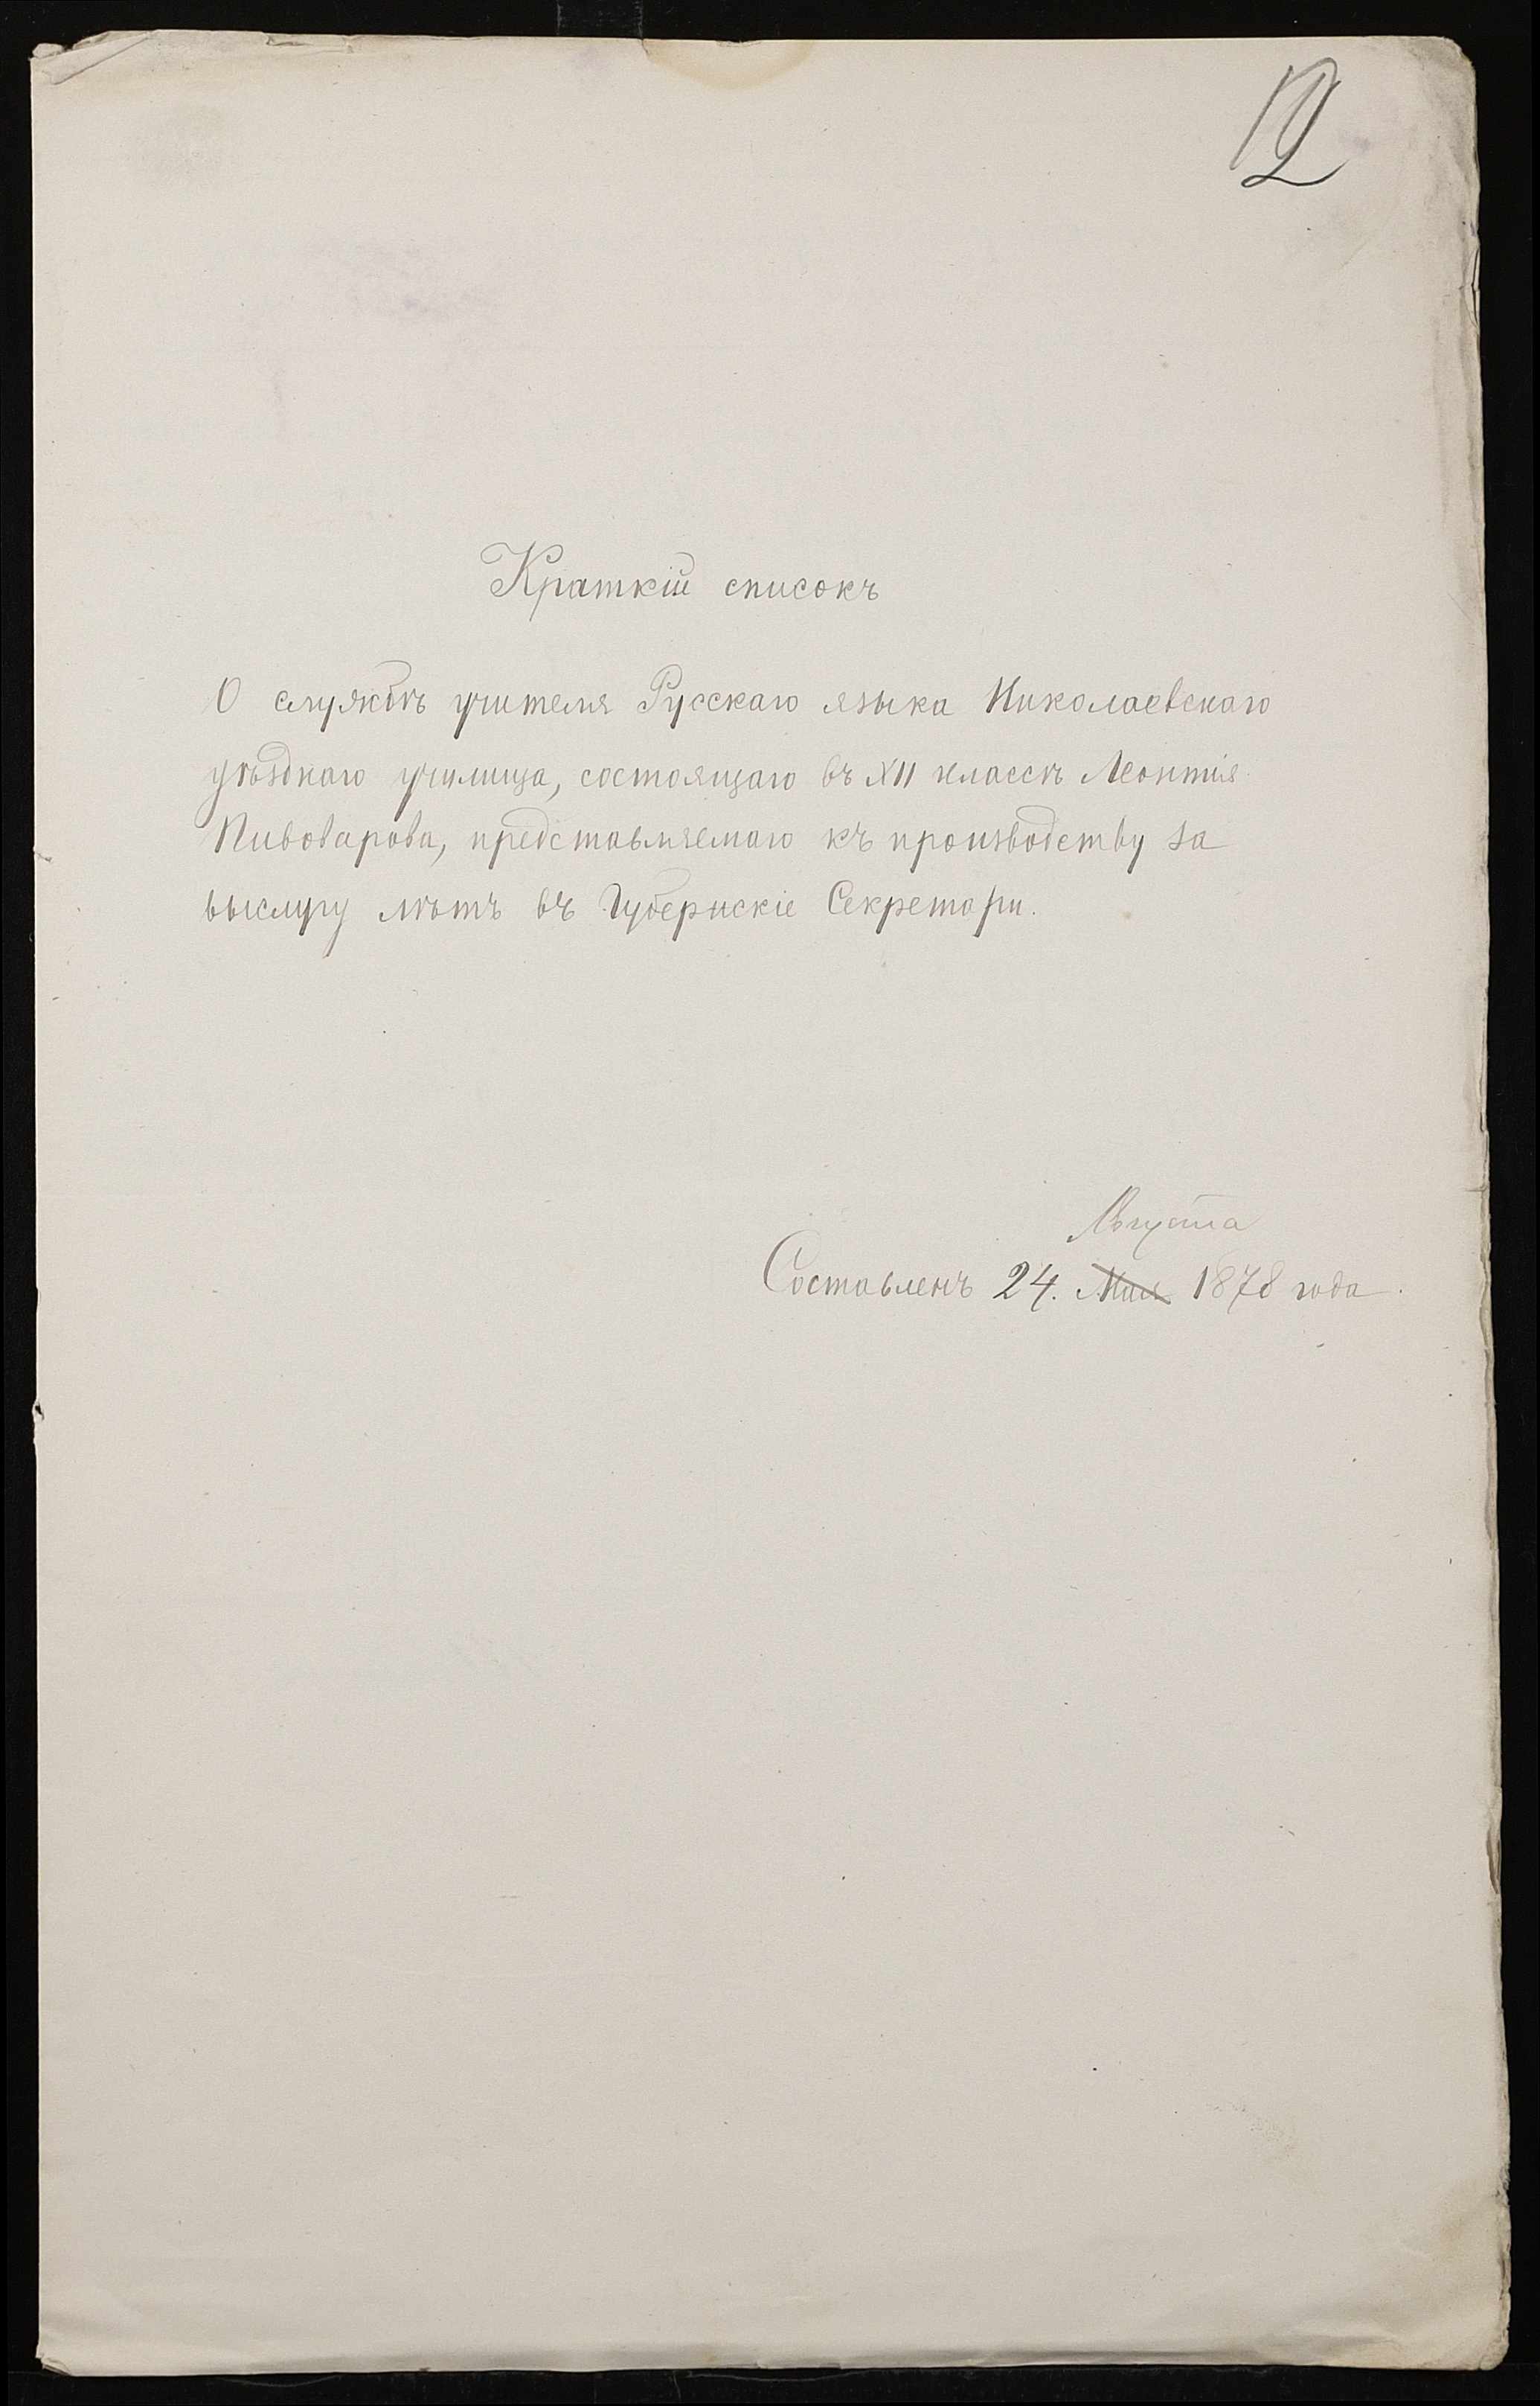 12
Краткій списокъ
О службѣ учителя Русскаго языка Николаевскаго
уѣзднаго училища, состоящаго въ XII классѣ Леонтія
Пивоварова, представляемаго къ производству за
выслугу лѣтъ въ Губернскіе Секретари.
Августа
Составленъ 24. Мая 1878 года.